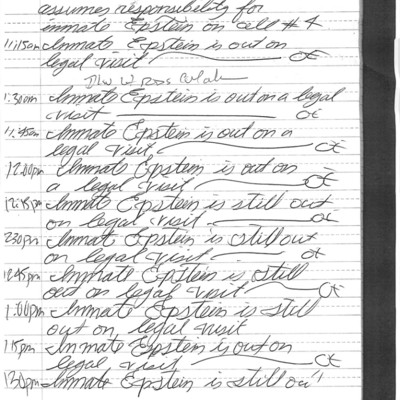 assumes responsibility for
inmate Epstein on cell #4
11:15am Inmate Epstein is out on
legal visit
1:30am Inmate Epstein is out on a legal
visit OE
11:45am Inmate Epstein is out on a
legal visit OE
12:00pm Inmate Epstein is out on
a legal visit OE
12:15pm Inmate Epstein is still out
on legal visit OE
230pm Inmate Epstein is still out
on legal visit OE
12:45pm Inmate Epstein is still
out on legal visit OE
1:00pm Inmate Epstein is still
out on legal visit
115pm Inmate Epstein is out on
legal visit OE
130pm Inmate Epstein is still out